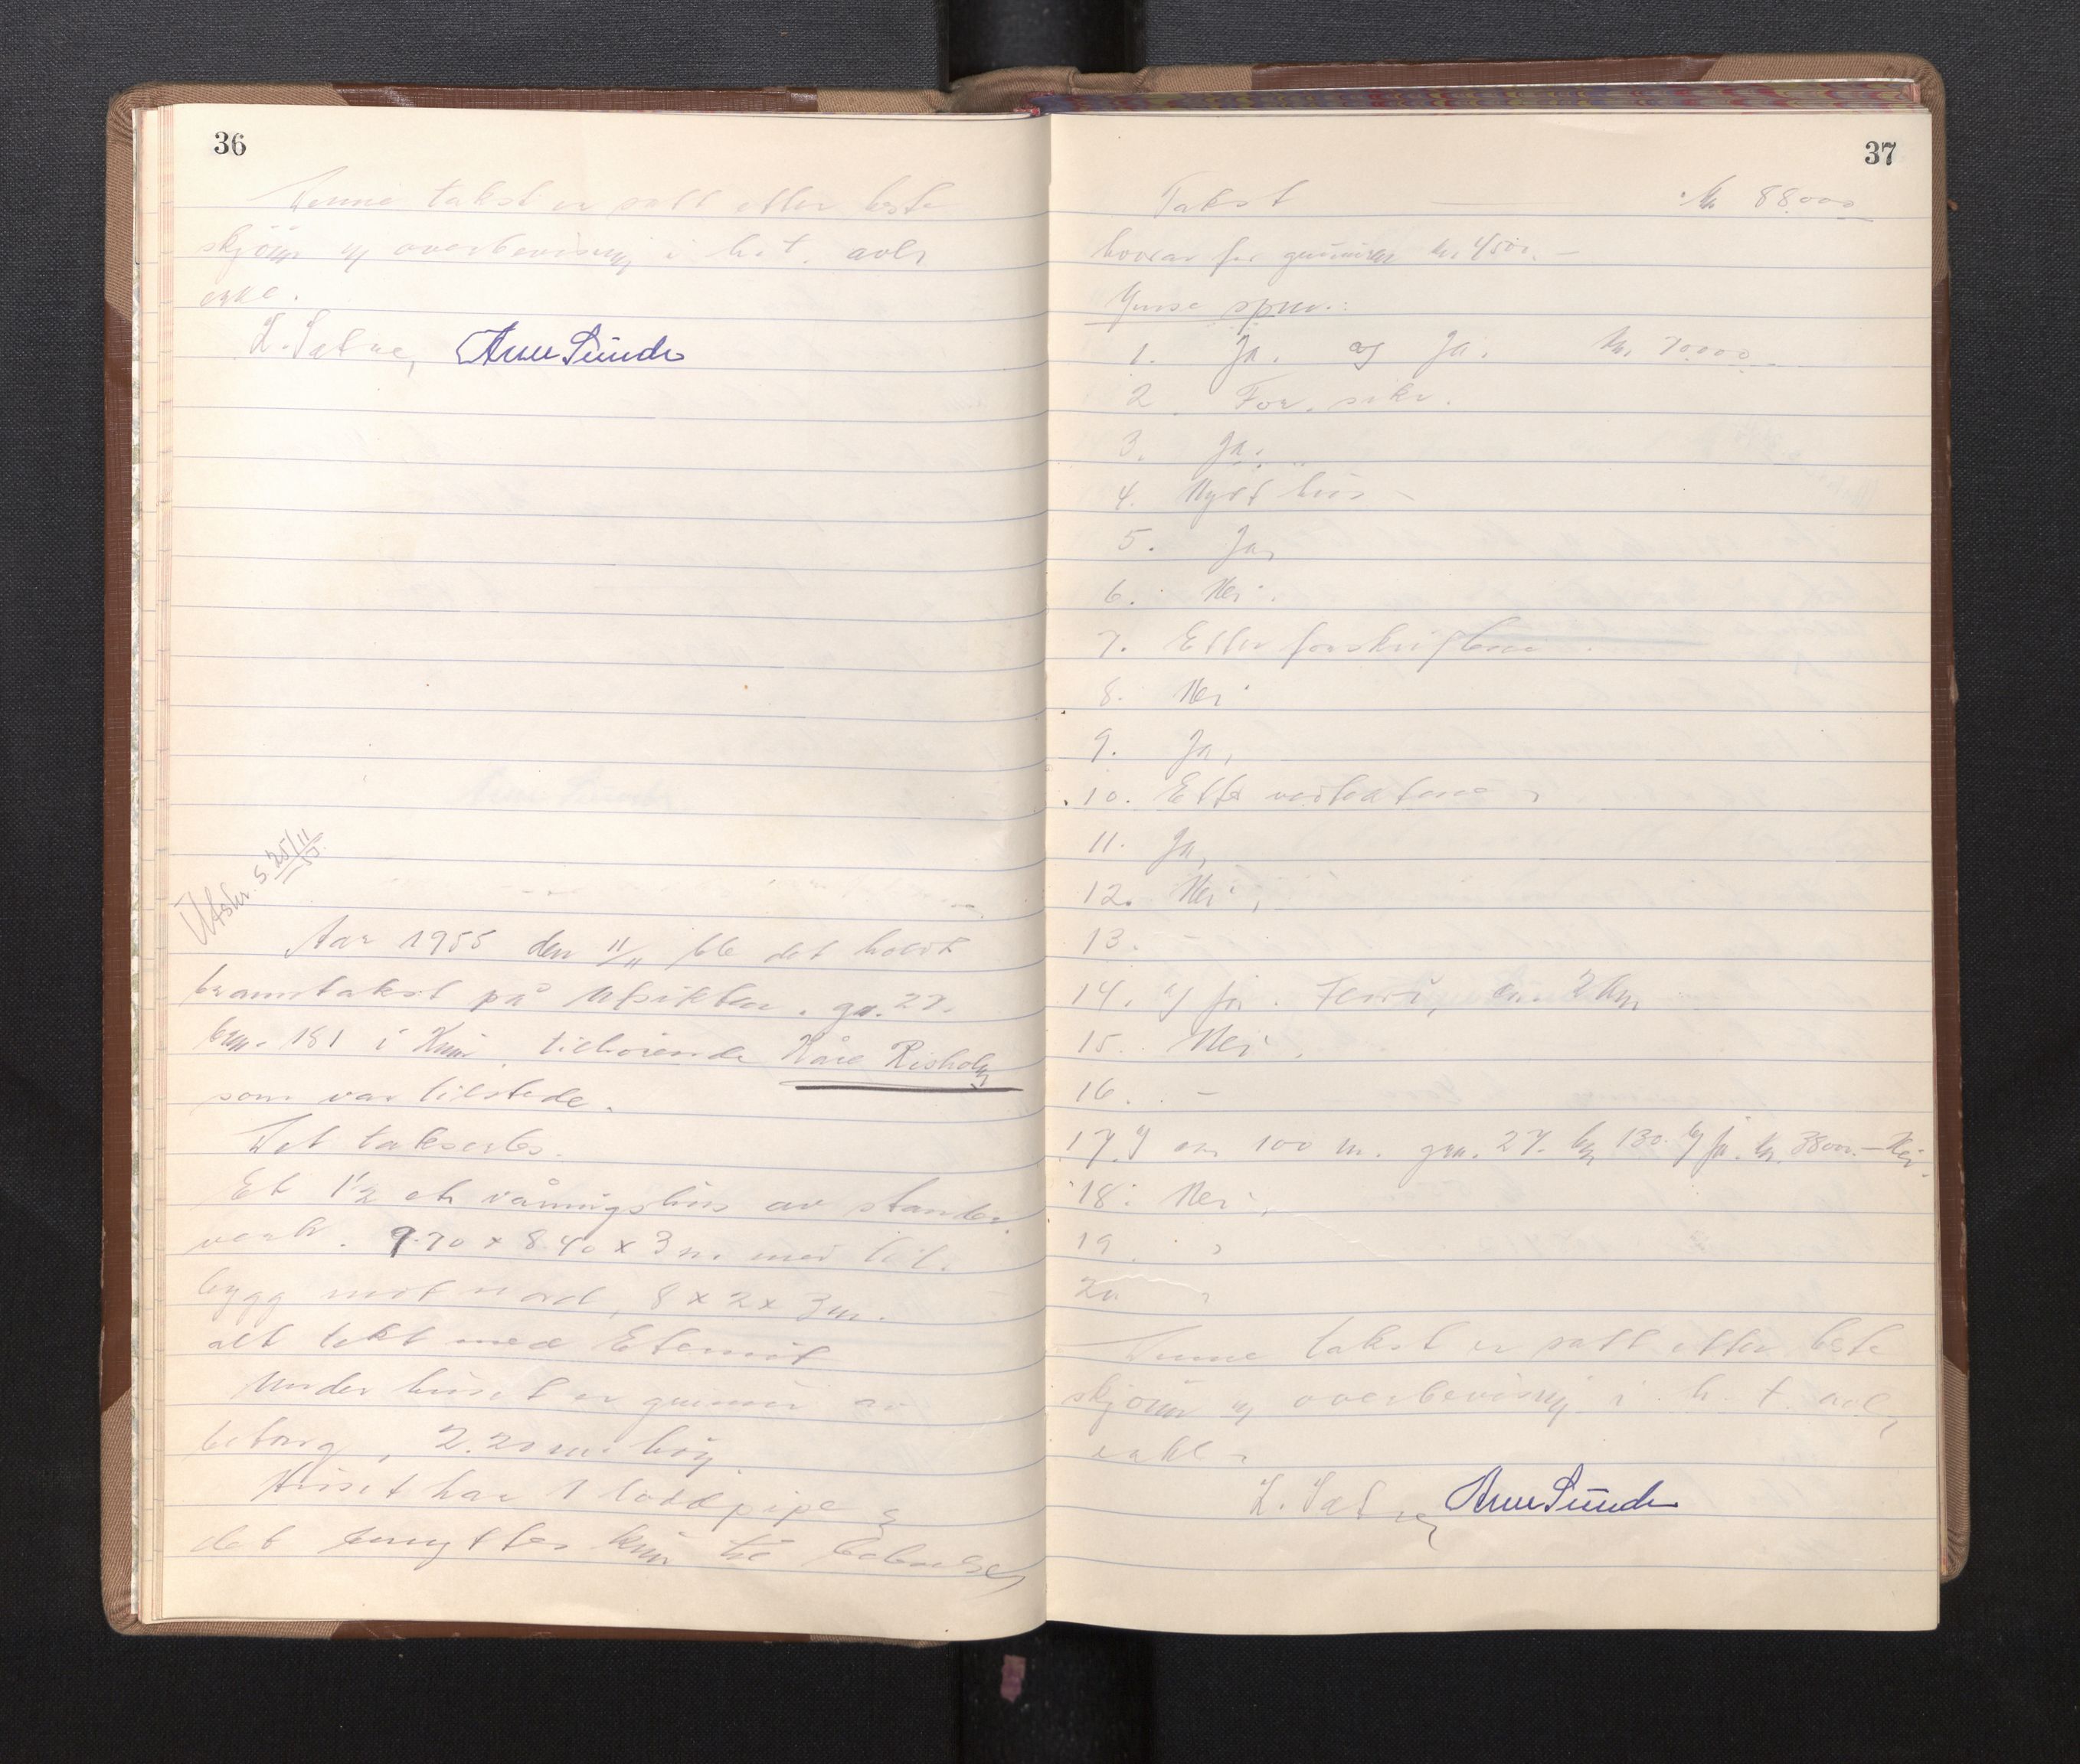 36
Denne takst er satt etter beste
skjönn og overbevisning i h.t. avls
L. Sætre, Arne Sunde
Utskr. S 25/11 55.
Aar 1955 den 11/11 ble det holdt
branntakst på Utsikten. gn. 27.
brn. 181 i tilhörende Kåre Risholm
som var tilstede.
Det takseres.
Et 1½ et våningshus av stander
verk. 9.70 x 8.40 x 3 m. med til.
bygg mot nord, 8 x 2 x 3 m.
alt tekt med Eternit
Under huset er grunnmur av
betong, 2.20 m. høy
Huset har 1 loddpipe og
det benyttes kun til beboelse
37
Takst Kr 88000
hvorav for grunnmur kr. 4500.-
Ymse spm.:
1. Ja. og Ja. Kr. 70.000
2. For. sikr.
3. Ja.
4. Nytt hus -
5. Ja,
6. Nei.
7. Etter forskriftene.
8. Nei
9. Ja,
10. Etter vedtektene
11. Ja,
12. Nei,
13.
14. og ja. 2 km
15. Nei.
16. -
17. om 100 m. gn. 27. bn 130. kr. 3800.- Nei.
18. Nei,
19.
20
Denne takst er satt etter beste
skjönn og overbevisning i h. t. avl,
L. Sætre, Arne Sunde